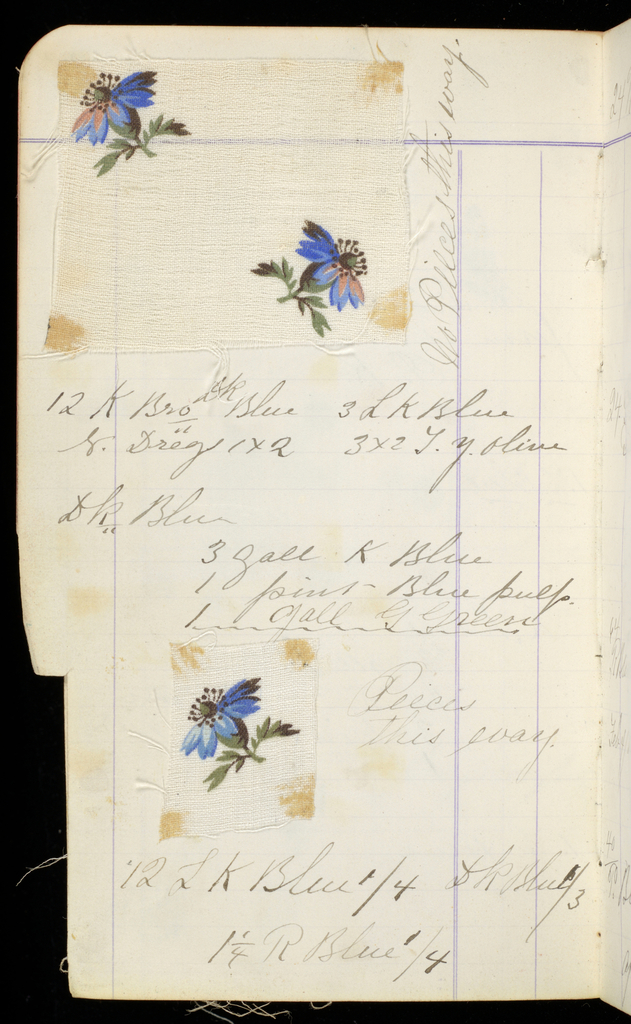 No Pieces this way.
12 K Bro Dk Blue 3 L K Blue
Dregs 1x2 3x2 T. y. Olive
Dk Blue
3 gall K Blue
1 pint Blue pulp.
1 gall G Green
Pieces
this way.
12 L K Blue 1/4 Dk Blue 1/3
1 1/4 R Blue 1/4